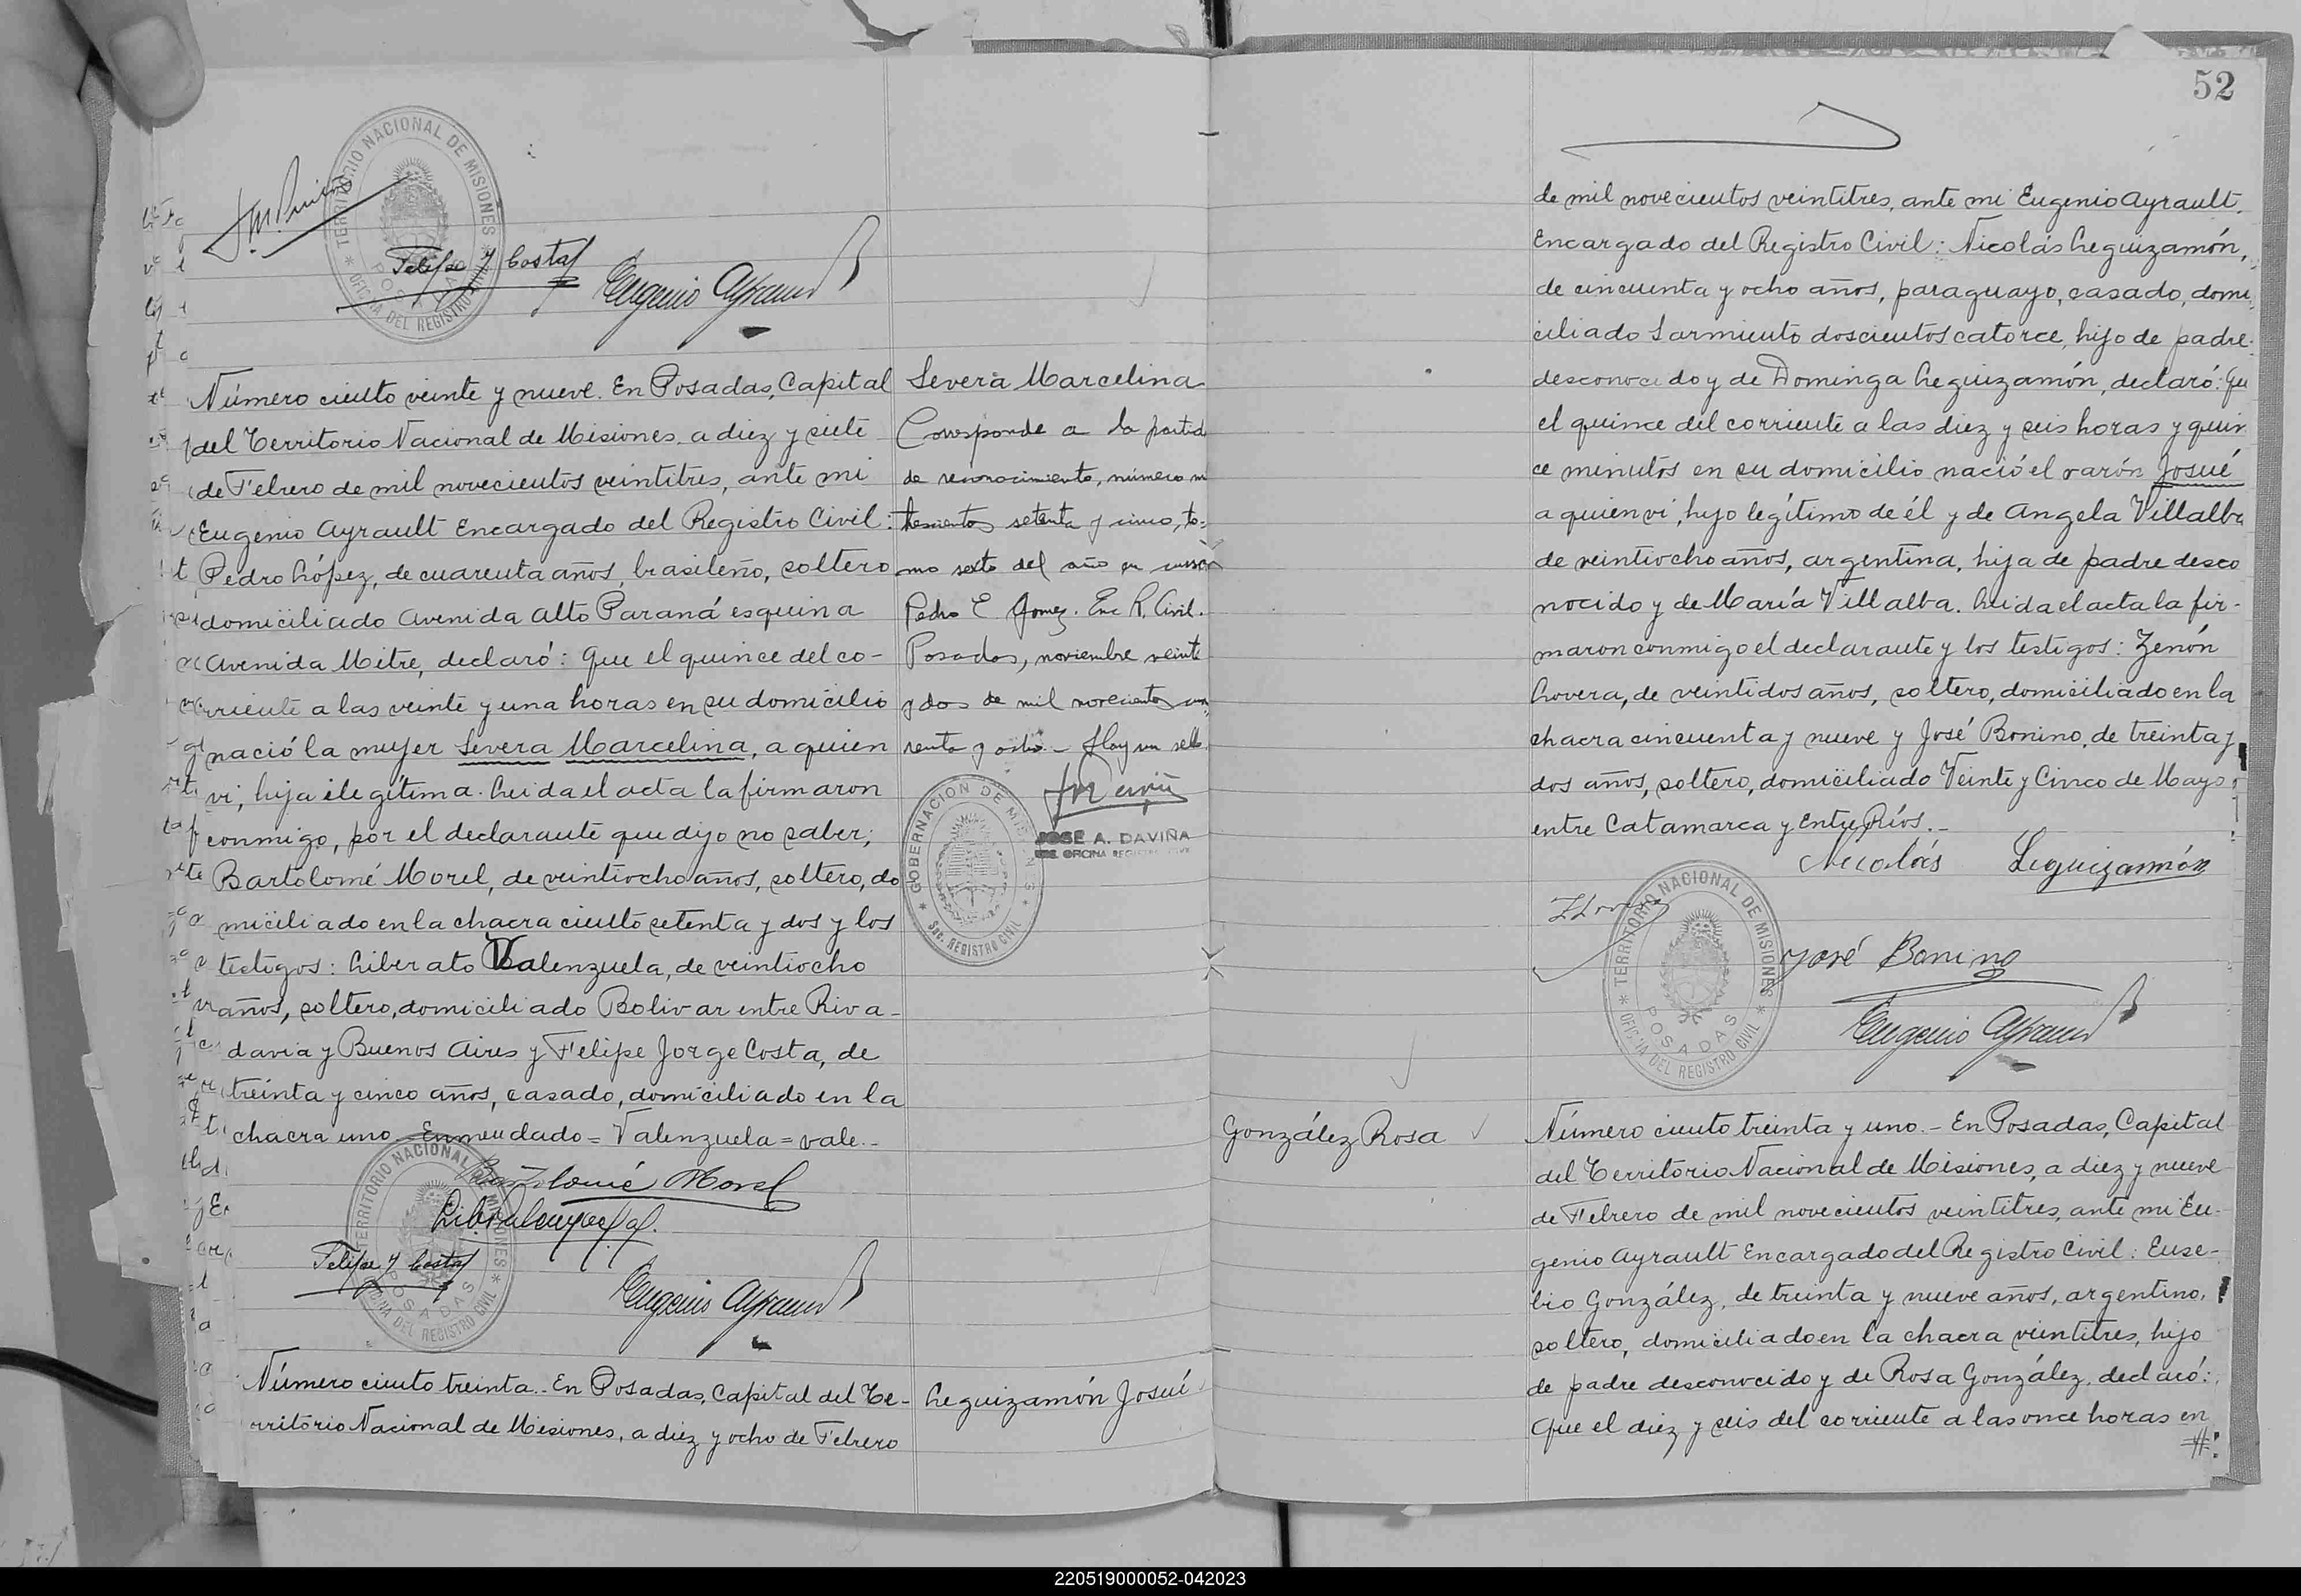 TERRITORIO NACIONAL DE MISIONES
OFICINA DEL REGISTRO CIVIL
POSADAS
Felipe J Costa
Eugenio Ayrault
Número ciento veinte y nueve. En Posadas, Capital
del Territorio Nacional de Misiones, a diez y siete
de Febrero de mil novecientos veintitres, ante mi
Eugenio Ayrault Encargado del Registro Civil:
Pedro López, de cuarenta años, brasileño, soltero
domiciliado Avenida Alto Paraná esquina
Avenida Mitre, declaró: Que el quince del co-
rriente a las veinte y una horas en su domicilio
nació la mujer Severa Marcelina, a quien
vi, hija ilegítima. Leida el acta la firmaron
conmigo, por el declarante que dijo no saber;
Bartolomé Morel, de veintiocho años, soltero, do
miciliado en la chacra ciento setenta y dos y los
testigos: Liberato Valenzuela, de veintiocho
años, soltero, domiciliado Bolivar entre Riva-
davia y Buenos Aires y Felipe Jorge Costa, de
treinta y cinco años, casado, domiciliado en la
chacra uno. Enmendado = Valenzuela = vale.-
Bartolomé Morel
Felipe J Costa
Eugenio Ayrault
TERRITORIO NACIONAL DE MISIONES
OFICINA DEL REGISTRO CIVIL
POSADAS
Número ciento treinta.. En Posadas, Capital del Te-
rritorio Nacional de Misiones, a diez y ocho de Febrero
Severa Marcelina
Corresponde a la partid
de reconocimiento, número
trescientos setenta y cinco, to-
mo sexto del año en curso
Pedro E. Gomez. Enc R. Civil.
Posadas, noviembre veinte
y dos de mil novecientos cua
renta y ocho.- Hay un sello.
JOSE A. DAVIÑA
OFICINA REGISTRO CIVIL
GOBERNACION DE MISIONES
Sec. REGISTRO CIVIL
Leguizamón Josué
52
de mil novecientos veintitres, ante mi Eugenio Ayrault
Encargado del Registro Civil: Nicolás Leguizamón,
de cincuenta y ocho años, paraguayo, casado, domi
ciliado Sarmiento doscientos catorce, hijo de padre
desconocido y de Dominga Leguizamón, declaró: Qu
el quince del corriente a las diez y seis horas y quin
ce minutos en su domicilio nació el varón Josué
a quien vi, hijo legítimo de él y de Angela Villalba
de veintiocho años, argentina, hija de padre desco
nocido y de María Villalba. Leida el acta la fir-
maron conmigo el declarante y los testigos: Zenón
Lovera, de veintidos años, soltero, domiciliado en la
chacra cincuenta y nueve y José Bonino, de treinta y
dos años, soltero, domiciliado Veinte y Cinco de Mayo
entre Catamarca y Entre Ríos.-
Nicolás Leguizamón
José Bonino
Eugenio Ayrault
TERRITORIO NACIONAL DE MISIONES
OFICINA DEL REGISTRO CIVIL
POSADAS
González Rosa
Número ciento treinta y uno.- En Posadas, Capital
del Territorio Nacional de Misiones, a diez y nueve
de Febrero de mil novecientos veintitres, ante mi Eu-
genio Ayrault Encargado del Registro Civil: Euse-
bio González, de treinta y nueve años, argentino,
soltero, domiciliado en la chacra veintitres, hijo
de padre desconocido y de Rosa González, declaró:
Que el diez y seis del corriente a las once horas en
220519000052-042023